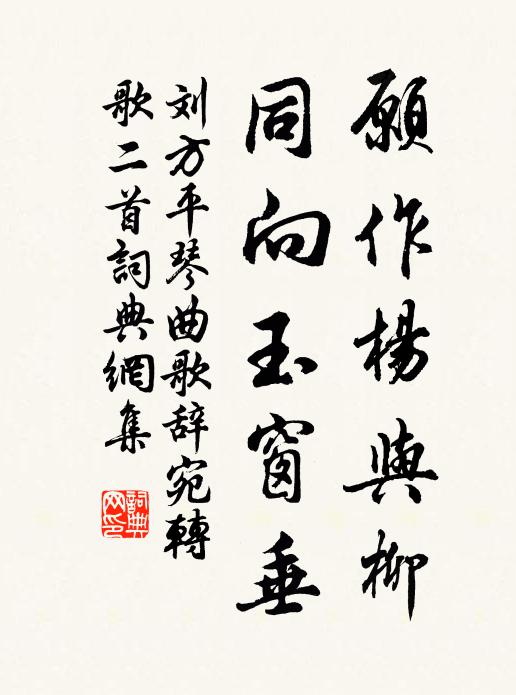 願作楊與柳
同向玉窗垂
刘方平琴曲歌辞宛轉
歌二首詞典網集
詞典网印